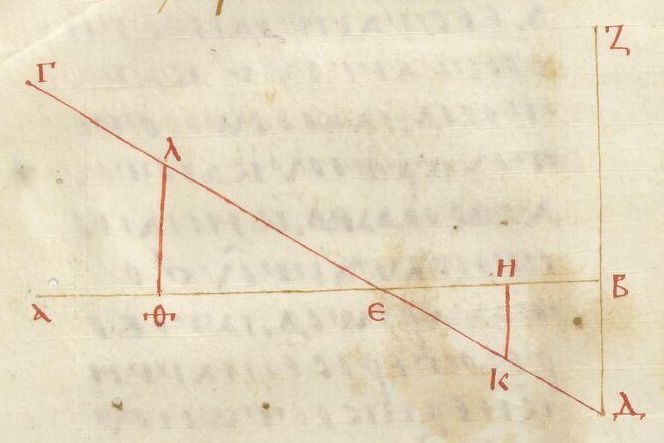 Ζ
Γ
Λ
Η
Β
Α
Θ
Ε
Κ
Δ